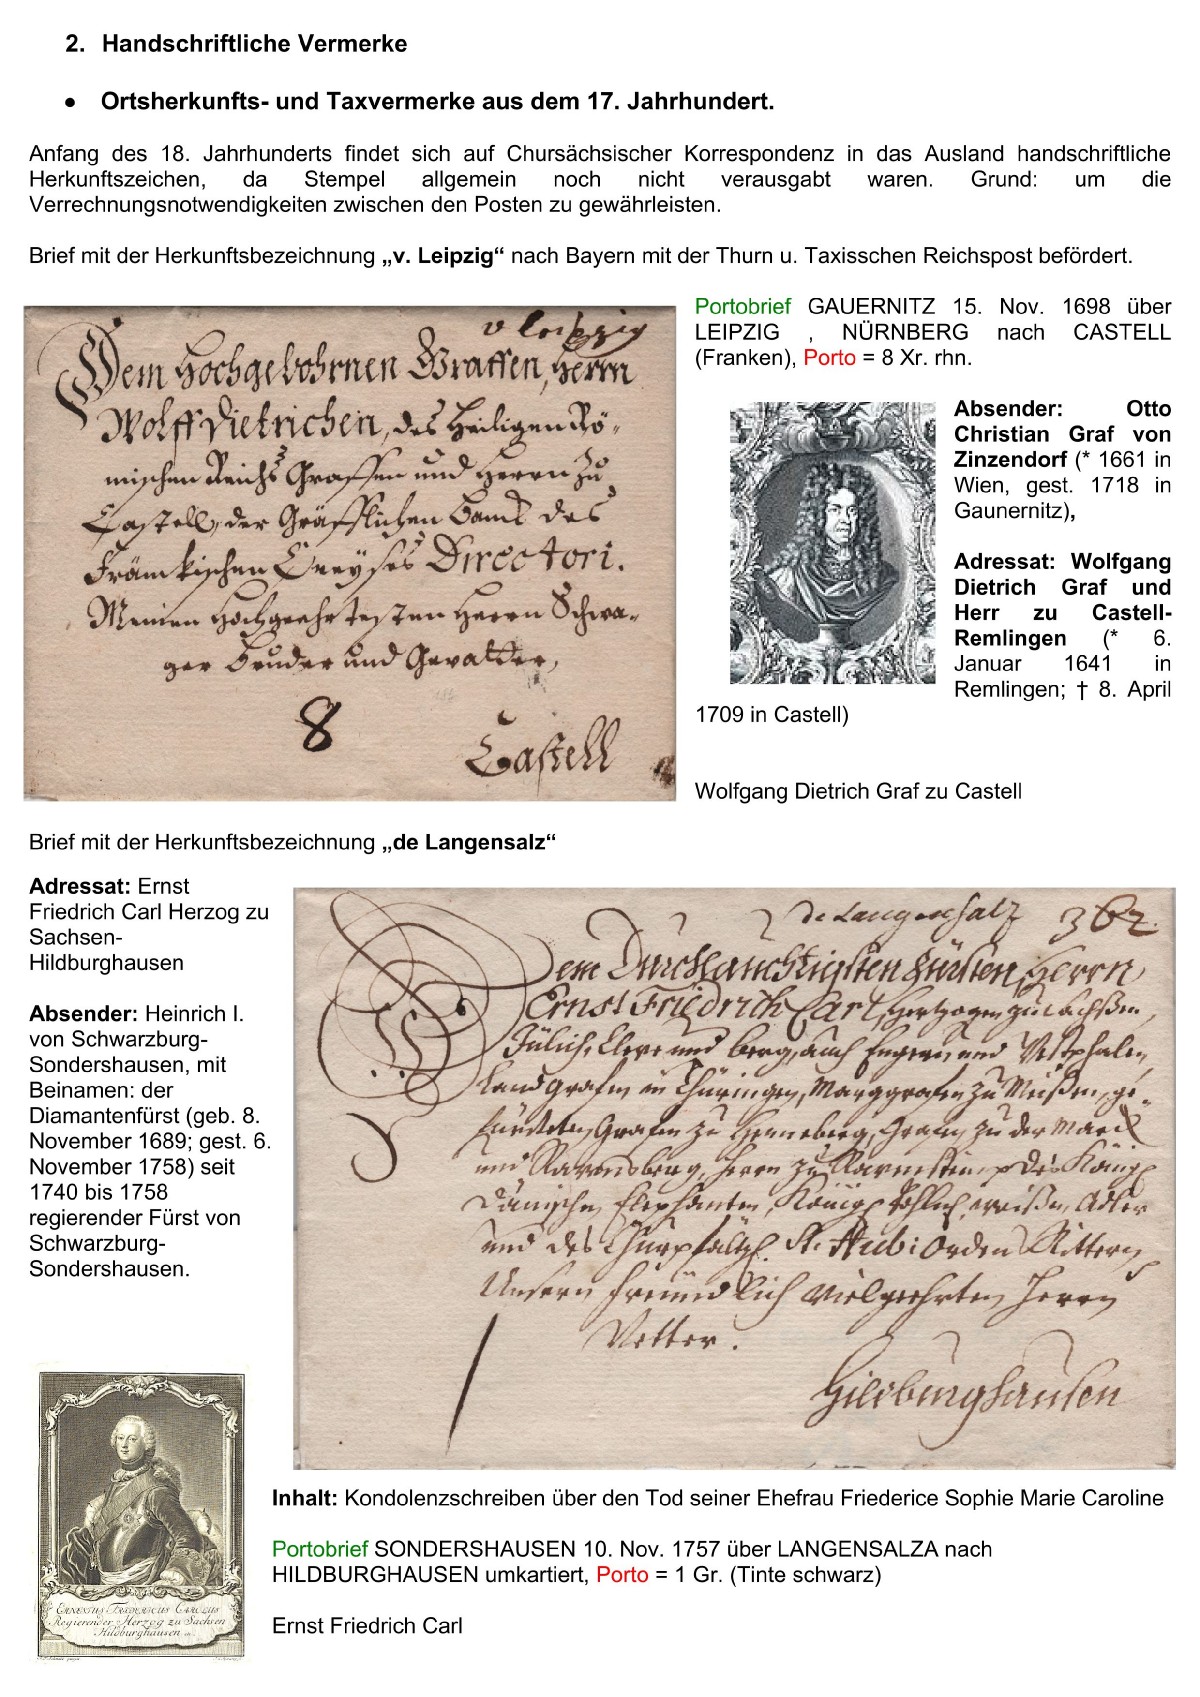 2. Handschriftliche Vermerke
• Ortsherkunfts- und Taxvermerke aus dem 17. Jahrhundert.
Anfang des 18. Jahrhunderts findet sich auf Chursächsischer Korrespondenz in das Ausland handschriftliche
Herkunftszeichen, da Stempel allgemein noch nicht verausgabt waren. Grund: um die
Verrechnungsnotwendigkeiten zwischen den Posten zu gewährleisten.
Brief mit der Herkunftsbezeichnung „v. Leipzig“ nach Bayern mit der Thurn u. Taxisschen Reichspost befördert.
v Leipzig
Dem Hochgebohrnen Graffen, Herrn
Wolff Dietrichen, des Heiligen Rö-
mischen Reichs Graffen und Herrn zu
Castell, der Gräfflichen Banck des
Fränkischen Creyses Directori.
Meinen Hochgeehrtesten Herrn Schwa-
ger Bruder und Gevatter,
8
Castell
Portobrief GAUERNITZ 15. Nov. 1698 über
LEIPZIG , NÜRNBERG nach CASTELL
(Franken), Porto = 8 Xr. rhn.
Absender: Otto
Christian Graf von
Zinzendorf (* 1661 in
Wien, gest. 1718 in
Gaunernitz),
Adressat: Wolfgang
Dietrich Graf und
Herr zu Castell-
Remlingen (* 6.
Januar 1641 in
Remlingen; † 8. April
1709 in Castell)
Wolfgang Dietrich Graf zu Castell
Brief mit der Herkunftsbezeichnung „de Langensalz“
Adressat: Ernst
Friedrich Carl Herzog zu
Sachsen-
Hildburghausen
Absender: Heinrich I.
von Schwarzburg-
Sondershausen, mit
Beinamen: der
Diamantenfürst (geb. 8.
November 1689; gest. 6.
November 1758) seit
1740 bis 1758
regierender Fürst von
Schwarzburg-
Sondershausen.
de Langensalz
Dem Durchlauchtigsten Fürsten, Herrn
Ernst Friedrich Carl, Hertzogen zu Sachßen,
Jülich, Cleve und Berg, auch Engern und Westphalen,
Landgrafen in Thüringen, Marggrafen zu Meißen, ge-
fürsteten Grafen zu Henneberg, Grafen zu der Marck
und Ravensberg, Herrn zu Ravenstein p des Königl
Dänischen Elephanten, Königl Pohlisch weißen Adler
und des Churpfältzl. St. Hub: Orden Rittern,
Unsern freundlich vielgeehrten Herrn
Vetter.
Hildburghausen
ERNESTUS FRIDERICUS CAROLUS
Regierender Herzog zu Sachsen
Hildburghausen
Inhalt: Kondolenzschreiben über den Tod seiner Ehefrau Friederice Sophie Marie Caroline
Portobrief SONDERSHAUSEN 10. Nov. 1757 über LANGENSALZA nach
HILDBURGHAUSEN umkartiert, Porto = 1 Gr. (Tinte schwarz)
Ernst Friedrich Carl